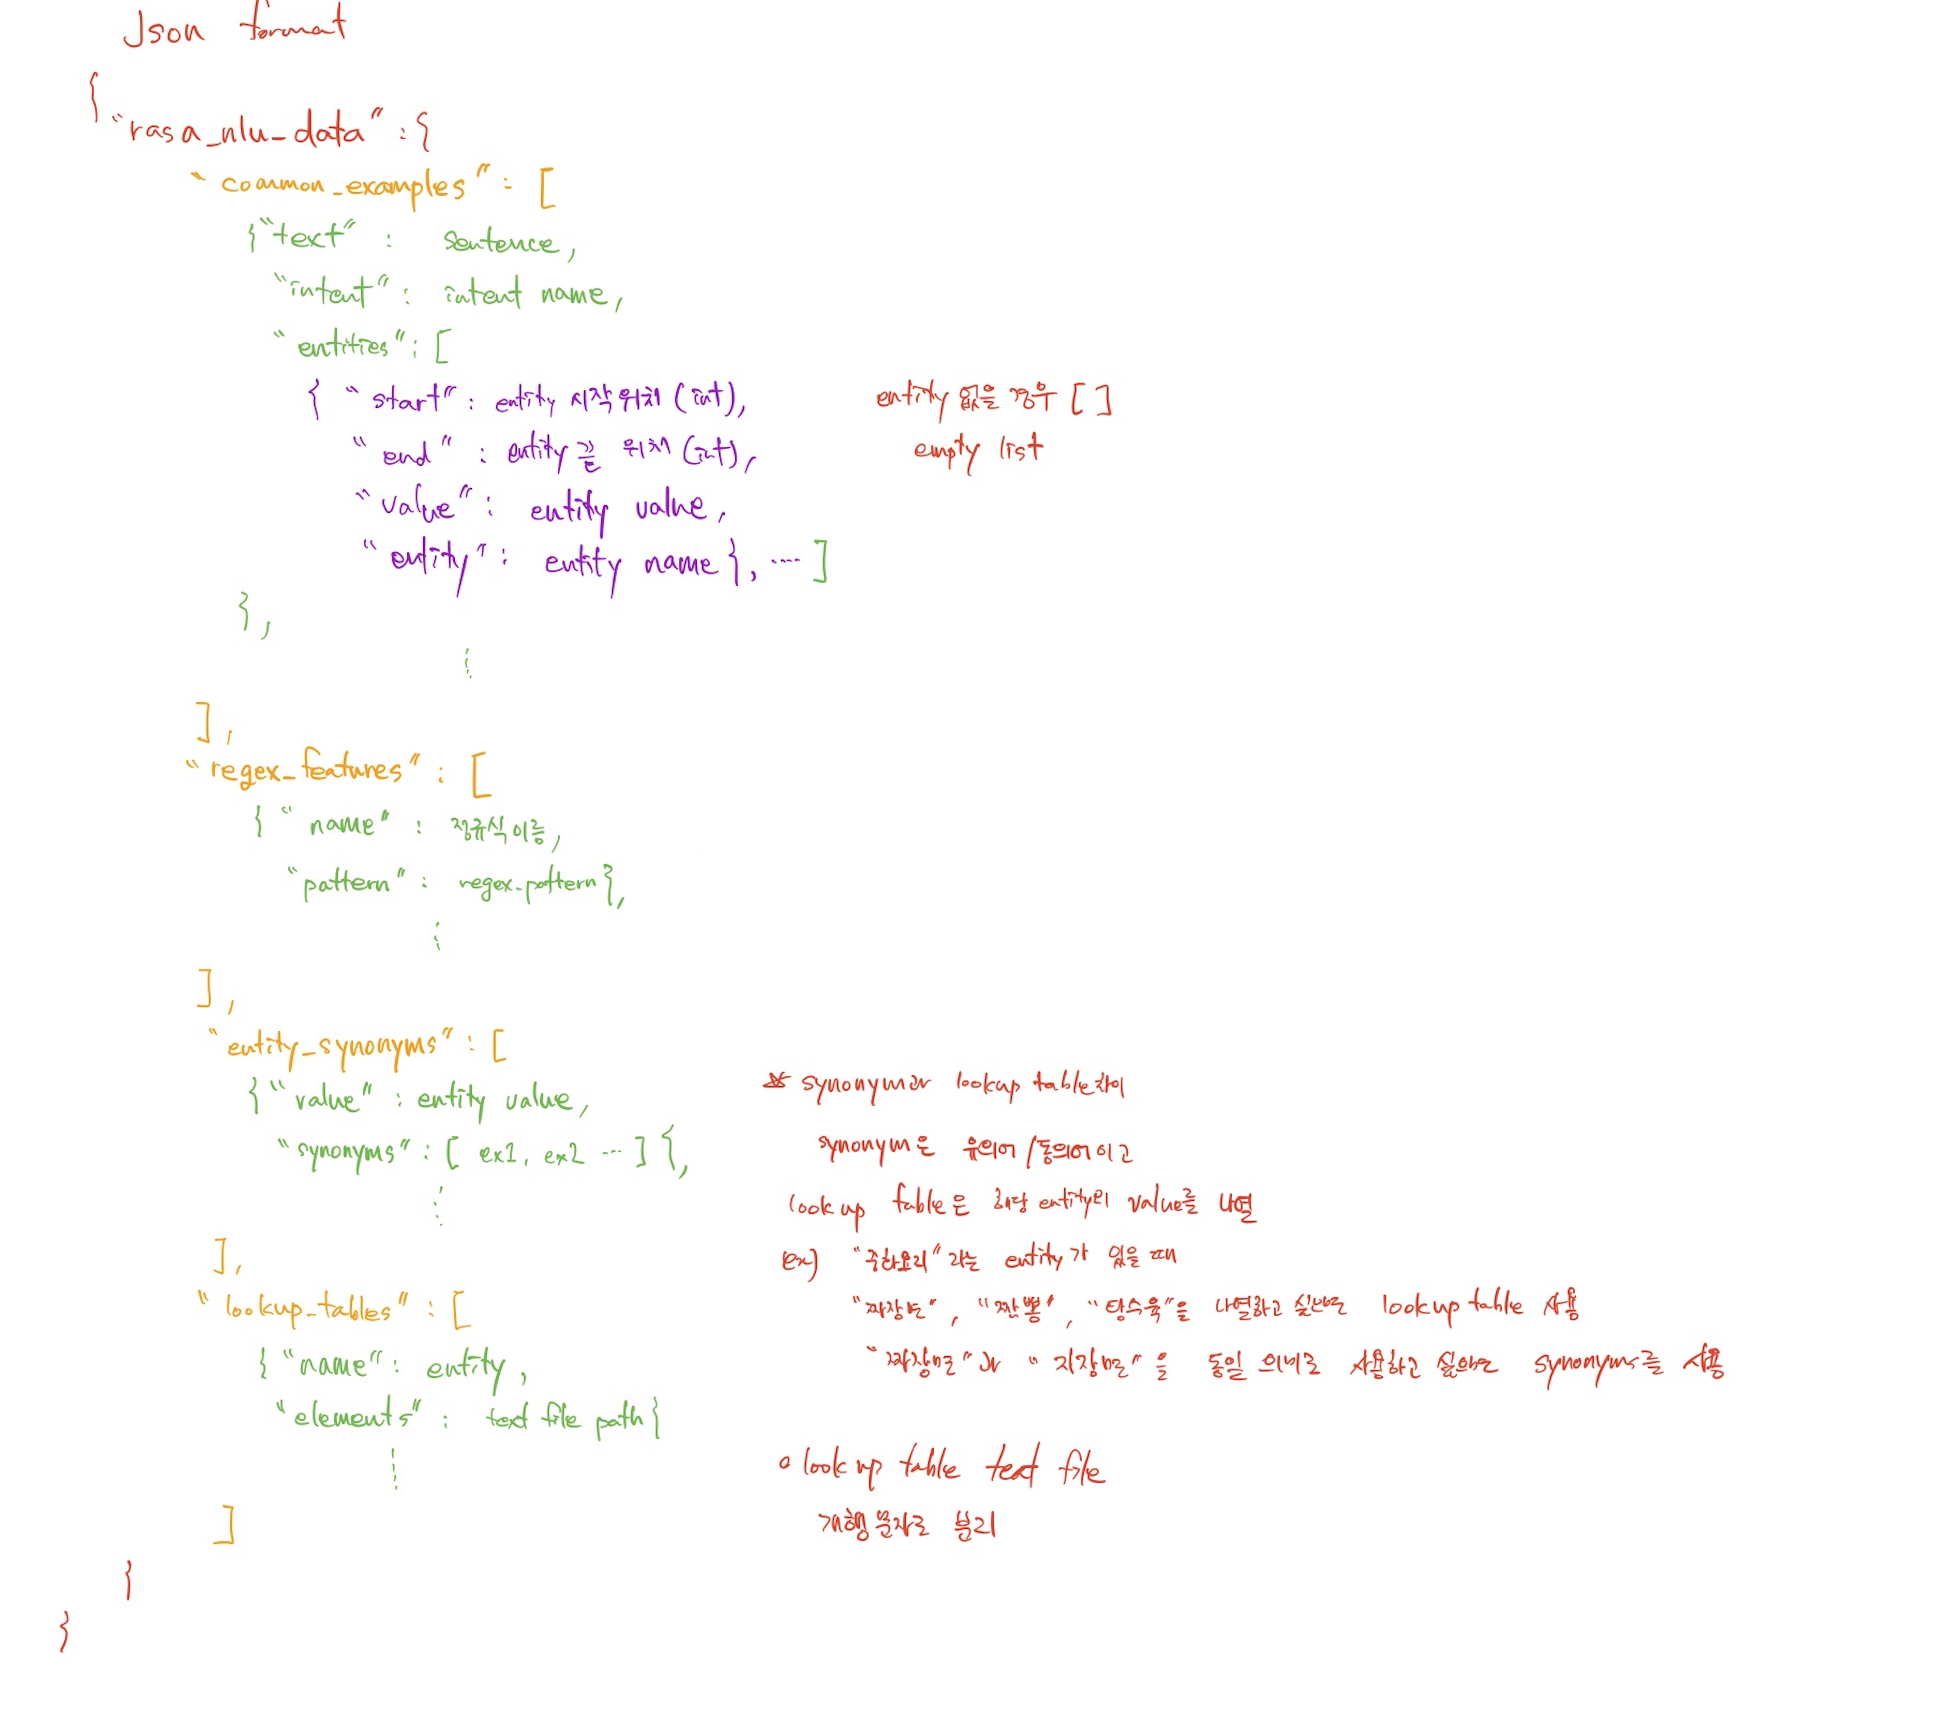 Json format
{
"rasa_nlu_data" : {
"common_examples" : [
{"text" : sentence,
"intent" : intent name,
"entities" : [
{ "start" : entity 시작 위치 (int),
entity 없을 경우 [ ]
"end" : entity 끝 위치 (int),
empty list
"value" : entity value,
"entity" : entity name }, ···· ]
},
⋮
],
"regex_features" : [
{ "name" : 정규식 이름,
"pattern" : regex_pattern },
⋮
],
"entity_synonyms" : [
{"value" : entity value,
"synonyms" : [ ex1, ex2 ··· ] },
⋮
],
"lookup_tables" : [
{ "name" : entity,
"elements" : text file path }
⋮
]
}
}
※ synonym과 lookup table 차이
synonym은 유의어/동의어이고
lookup table은 해당 entity의 value를 나열
ex) "중화요리"라는 entity가 있을 때
"짜장면", "짬뽕", "탕수육"을 나열하고 싶으면 lookup table 사용
"짜장면"과 "자장면"을 동일 의미로 사용하고 싶으면 synonyms를 사용
o lookup table text file
개행문자로 분리